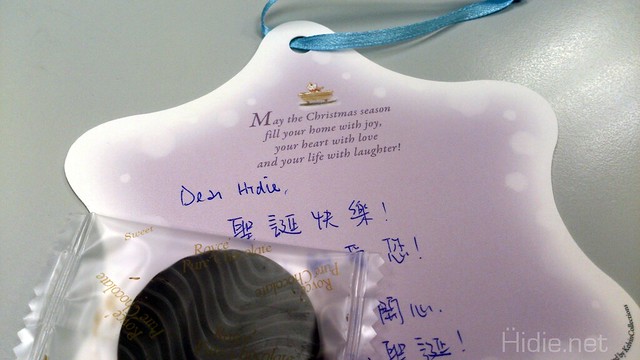 May the Christmas season
fill your home with joy,
your heart with love
and your life with laughter!
Dear Hidie,
聖誕快樂!
您!
關心.
聖誕!
Sweet
Royce'
Pure Chocolate
Royce'
Pure Chocolate
Royce'
Pure Chocolate
Hidie.net